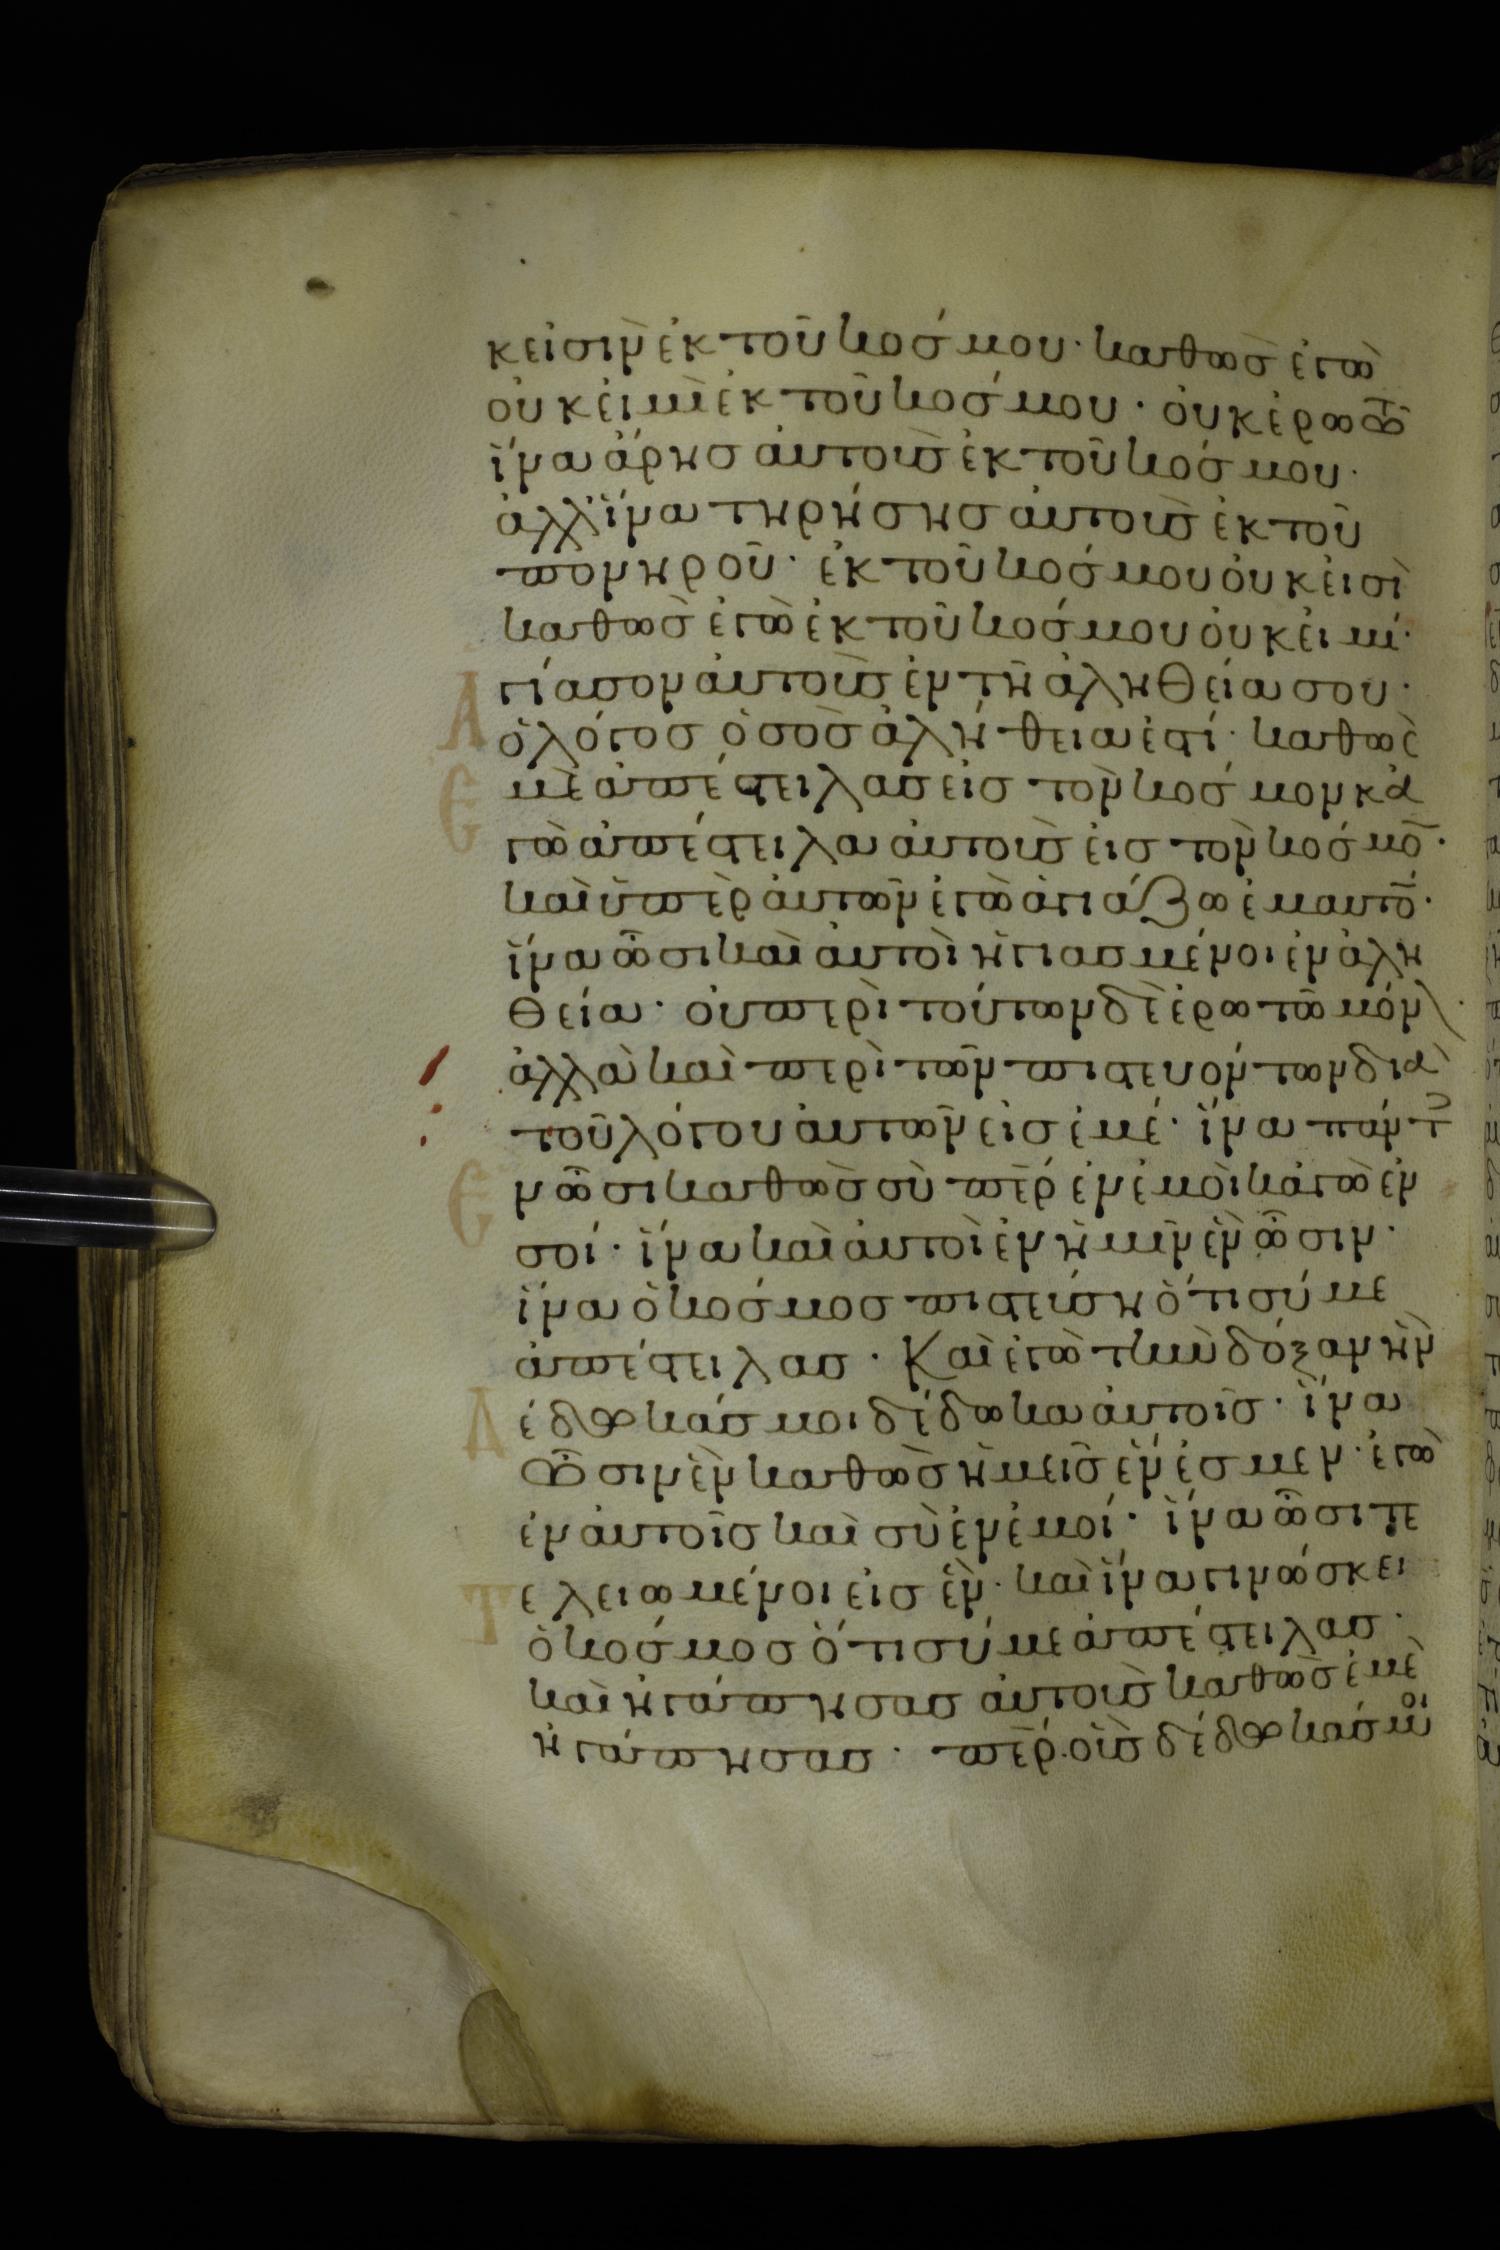 κεἰσὶν ἐκ τοῦ κόσμου· καθὼς ἐγὼ
οὐκ εἰμὶ ἐκ τοῦ κόσμου· οὐκ ἐρωτῶ
ἵνα ἄρης αὐτοὺς ἐκ τοῦ κόσμου·
ἀλλ' ἵνα τηρήσης αὐτοὺς ἐκ τοῦ
πονηροῦ· ἐκ τοῦ κόσμου οὐκ εἰσὶ
καθὼς ἐγὼ ἐκ τοῦ κόσμου οὐκ εἰμί·
γίασον αὐτοὺς ἐν τῆ ἀληθεία σου·
ὁ λόγος ὁ σὸς ἀλήθεια ἐστί· καθὼς ἐ
μὲ ἀπέστειλας εἰς τὸν κόσμον κἀ
γὼ ἀπέστειλα αὐτοὺς εἰς τὸν κόσμο̄·
καὶ ὑπὲρ αὐτῶν ἐγὼ ἁγιάζω ἐμαυτό̄·
ἵνα ὦσι καὶ αὐτοὶ ἡγιασμένοι ἐν ἀλη
θεία· οὐ περὶ τούτων δὲ ἐρωτῶ μόν·
ἀλλὰ καὶ περὶ τῶν πιστευόντων διὰ
τοῦ λόγου αὐτῶν εἰς ἐμέ· ἵνα πάντ
ν ὦσι καθὼς σὺ πε̄ρ ἐν ἐμοὶ κἀγὼ ἐν
σοί· ἵνα καὶ αὐτοὶ ἐν ἡμῖν ἓν ὦσιν·
ἵνα ὁ κόσμος πιστεύση ὅτι σύ με
ἀπέστειλας· Καὶ ἐγὼ τὴν δόξαν ἣν
ἔδωκάς μοι δέδωκα αὐτοῖς· ἵνα
ὦσιν ἓν καθὼς ἡμεῖς ἕν ἐσμεν· ἐγὼ
ἐν αὐτοῖς καὶ σὺ ἐν ἐμοί· ἵνα ὦσι τε
ελειωμένοι εἰς ἕν· καὶ ἵνα γινώσκει
ὁ κόσμος ὅτι σύ με ἀπέστειλας·
καὶ ἠγάπησας αὐτοὺς καθὼς ἐμὲ
ἠγάπησας· πε̄ρ· οὓς δέδωκάς μοι